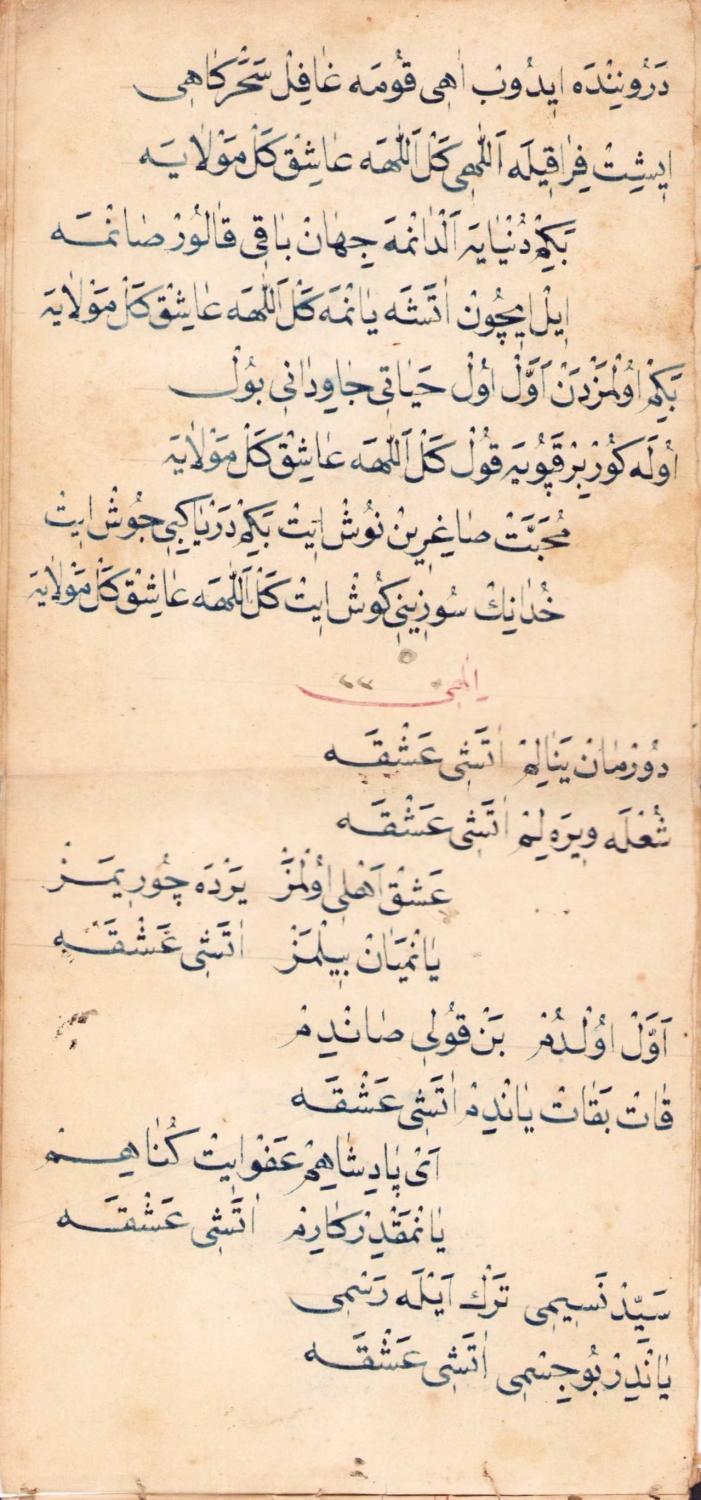 دَرُونِنْدَه ایدُوبْ اٰهِی قُومَه غٰافِلْ سَحَرْکَاهِی
اِیشِتْ فِرٰاقِیلَه اَللّٰهِی کَلْ اَللّٰهَه عٰاشِقْ کَلْ مَوْلٰایَه
بَکِمْ دُنْیٰایَه اَلْدٰانْمَه جِهٰانْ بٰاقِی قٰالُورْ صٰانْمَه
اِیلْ اِیچُونْ اٰتَشَه یٰانْمَه کَلْ اَللّٰهَه عٰاشِقْ کَلْ مَوْلٰایَه
بَکِمْ اُولْمَزْدَنْ اَوَّلْ اُولْ حَیٰاتِی جٰاوِدٰانِی بُولْ
اُولَه کُورْ بِرْ قَپُویَه قُولْ کَلْ اَللّٰهَه عٰاشِقْ کَلْ مَوْلٰایَه
مُحَبَّتْ صٰاغِرِینْ نُوشْ اِیتْ بَکِمْ دَرْیٰا کِبِی جُوشْ اِیتْ
خُدٰانِكْ سُوزِینِی کُوشْ اِیتْ کَلْ اَللّٰهَه عٰاشِقْ کَلْ مَوْلٰایَه
اِلٰهِی
دُورْمٰانْ یَنٰالِمْ اٰتَشِی عَشْقَه
شُعْلَه ویرَه لِمْ اٰتَشِی عَشْقَه
عَشْقْ اَهْلِی اُولْمَزْ یَرْدَه چُورِیمَزْ
یٰانْمَیٰانْ بِیلْمَزْ اٰتَشِی عَشْقَه
اَوَّلْ اُولْدُمْ بَنْ قُولِی صٰانْدِمْ
قٰاتْ بَقٰاتْ یٰانْدِمْ اٰتَشِی عَشْقَه
اَیْ پٰادِشٰاهِمْ عَفْوْ اِیتْ کُنٰاهِمْ
یٰانْمَقْدِرْ کٰارِمْ اٰتَشِی عَشْقَه
سَیِّدْ نَسِیمِی تَرْكْ اَیْلَه رَسْمِی
یٰانْدِرْ بُو جِسْمِی اٰتَشِی عَشْقَه